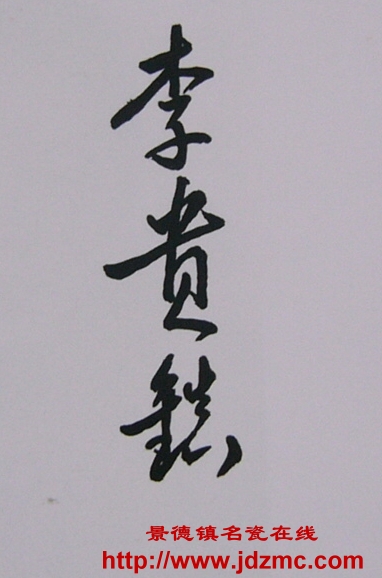 李貴
景德镇名瓷在线
http://www.jdzmc.com